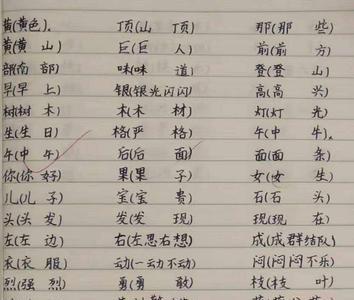 黄(黄色)、 顶(山 顶) 那(那 些)
黄(黄 山) 巨(巨 人) 前(前 方)
部(南 部) 味(味 道) 登(登 山)
早(早 上) 银(银光闪闪) 高(高 兴)
树(树 木) 木(木 材) 灯(灯 光)
生(生 日) 格(严 格) 午(中 午)、
午(中 午) 后(后 面) 面(面 条)
你(你 好) 果(果 子) 女(女 生)
儿(儿 子) 宝(宝 贵) 石(石 头)
头(头 发) 发(发 现) 现(现 在)
左(左 边) 右(左思右想) 成(成群结队)
衣(衣 服) 动(一动不动) 闷(闷闷不乐)
烈(强 烈) 勇(勇 敢) 枝(枝 叶)